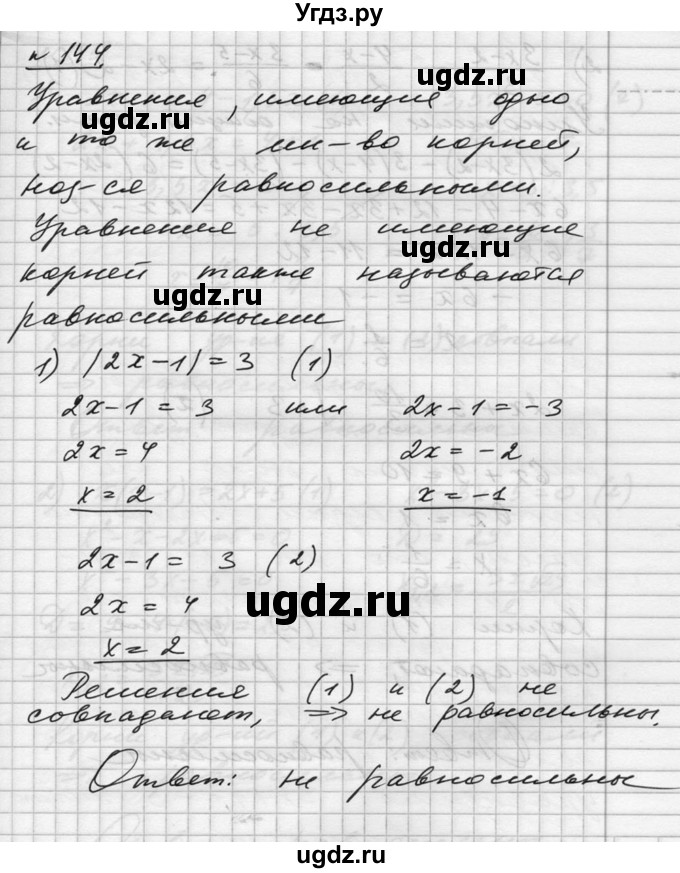 Угдз.ру
№ 144.
Уравнения, имеющие одно
ugdz.ru
и то же мн-во корней,
наз-ся равносильными.
Уравнения не имеющие
ugdz.ru
корней также называются
ugdz.ru
равносильными
1) |2x-1| = 3 (1)
2x-1 = 3 или 2x-1 = -3
2x = 4 2x = -2
x = 2 x = -1
2x-1 = 3 (2)
ugdz.ru
2x = 4
x = 2
Решения (1) и (2) не
совпадают, => не равносильны.
Ответ: не равносильны
ugdz.ru